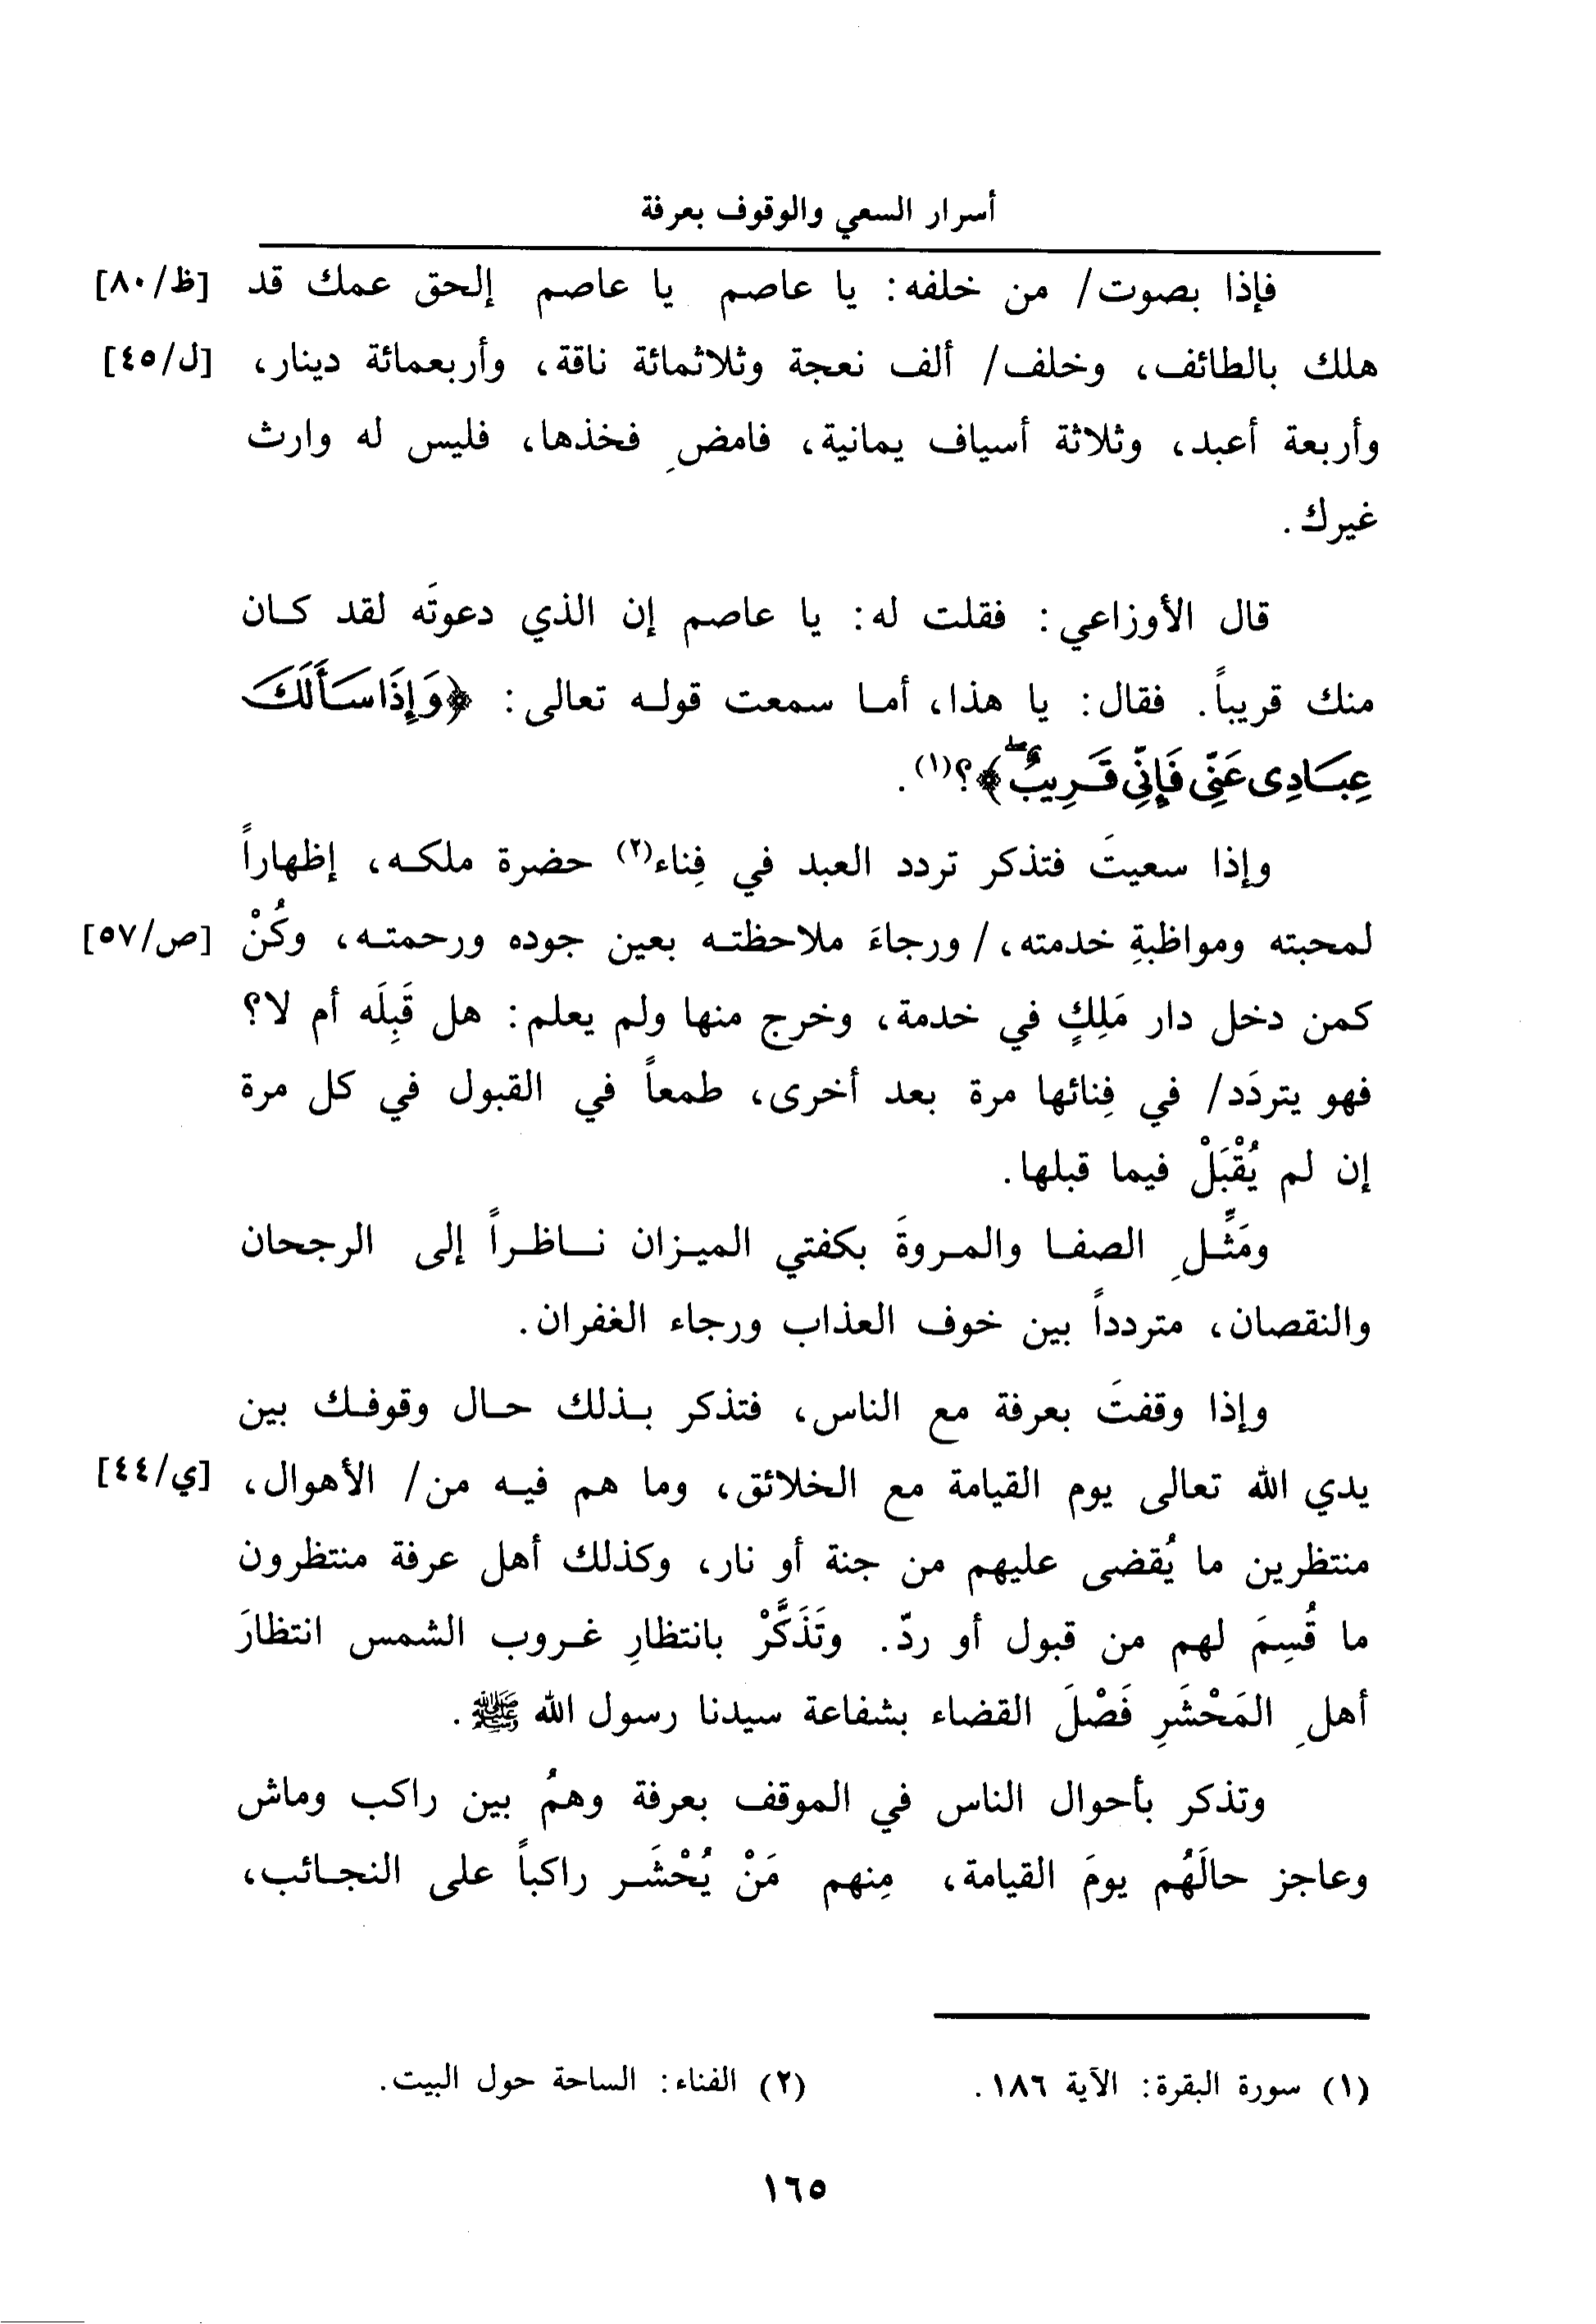 أسرار السعي والوقوف بعرفة
فإذا بصوت/ من خلفه: يا عاصم يا عاصم إلحق عمك قد [ظ/٨٠]
هلك بالطائف، وخلف/ ألف نعجة وثلاثمائة ناقة، وأربعمائة دينار، [ل/٤٥]
وأربعة أعبد، وثلاثة أسياف يمانية، فامضِ فخذها، فليس له وارث
غيرك.
قال الأوزاعي: فقلت له: يا عاصم إن الذي دعوتَه لقد كان
منك قريباً. فقال: يا هذا، أما سمعت قوله تعالى: ﴿وَإِذَا سَأَلَكَ
عِبَادِى عَنِّى فَإِنِّى قَرِيبٌۖ﴾؟(١).
وإذا سعيتَ فتذكر تردد العبد في فِناء(٢) حضرة ملكه، إظهاراً
لمحبته ومواظبةِ خدمته،/ ورجاءَ ملاحظته بعين جوده ورحمته، وكُنْ [ص/٥٧]
كمن دخل دار مَلِكٍ في خدمة، وخرج منها ولم يعلم: هل قَبِلَه أم لا؟
فهو يتردَد/ في فِنائها مرة بعد أخرى، طمعاً في القبول في كل مرة
إن لم يُقْبَلْ فيما قبلها.
ومَثِّلِ الصفا والمروةَ بكفتي الميزان ناظراً إلى الرجحان
والنقصان، متردداً بين خوف العذاب ورجاء الغفران.
وإذا وقفتَ بعرفة مع الناس، فتذكر بذلك حال وقوفك بين
يدي الله تعالى يوم القيامة مع الخلائق، وما هم فيه من/ الأهوال، [ي/٤٤]
منتظرين ما يُقضى عليهم من جنة أو نار، وكذلك أهل عرفة منتظرون
ما قُسِمَ لهم من قبول أو ردّ. وتَذَكَّرْ بانتظارِ غروب الشمس انتظارَ
أهلِ المَحْشَرِ فَصْلَ القضاء بشفاعة سيدنا رسول الله ﷺ.
وتذكر بأحوال الناس في الموقف بعرفة وهمُ بين راكب وماش
وعاجز حالَهُم يومَ القيامة، مِنهم مَنْ يُحْشَر راكباً على النجائب،
(١) سورة البقرة: الآية ١٨٦. (٢) الفناء: الساحة حول البيت.
١٦٥